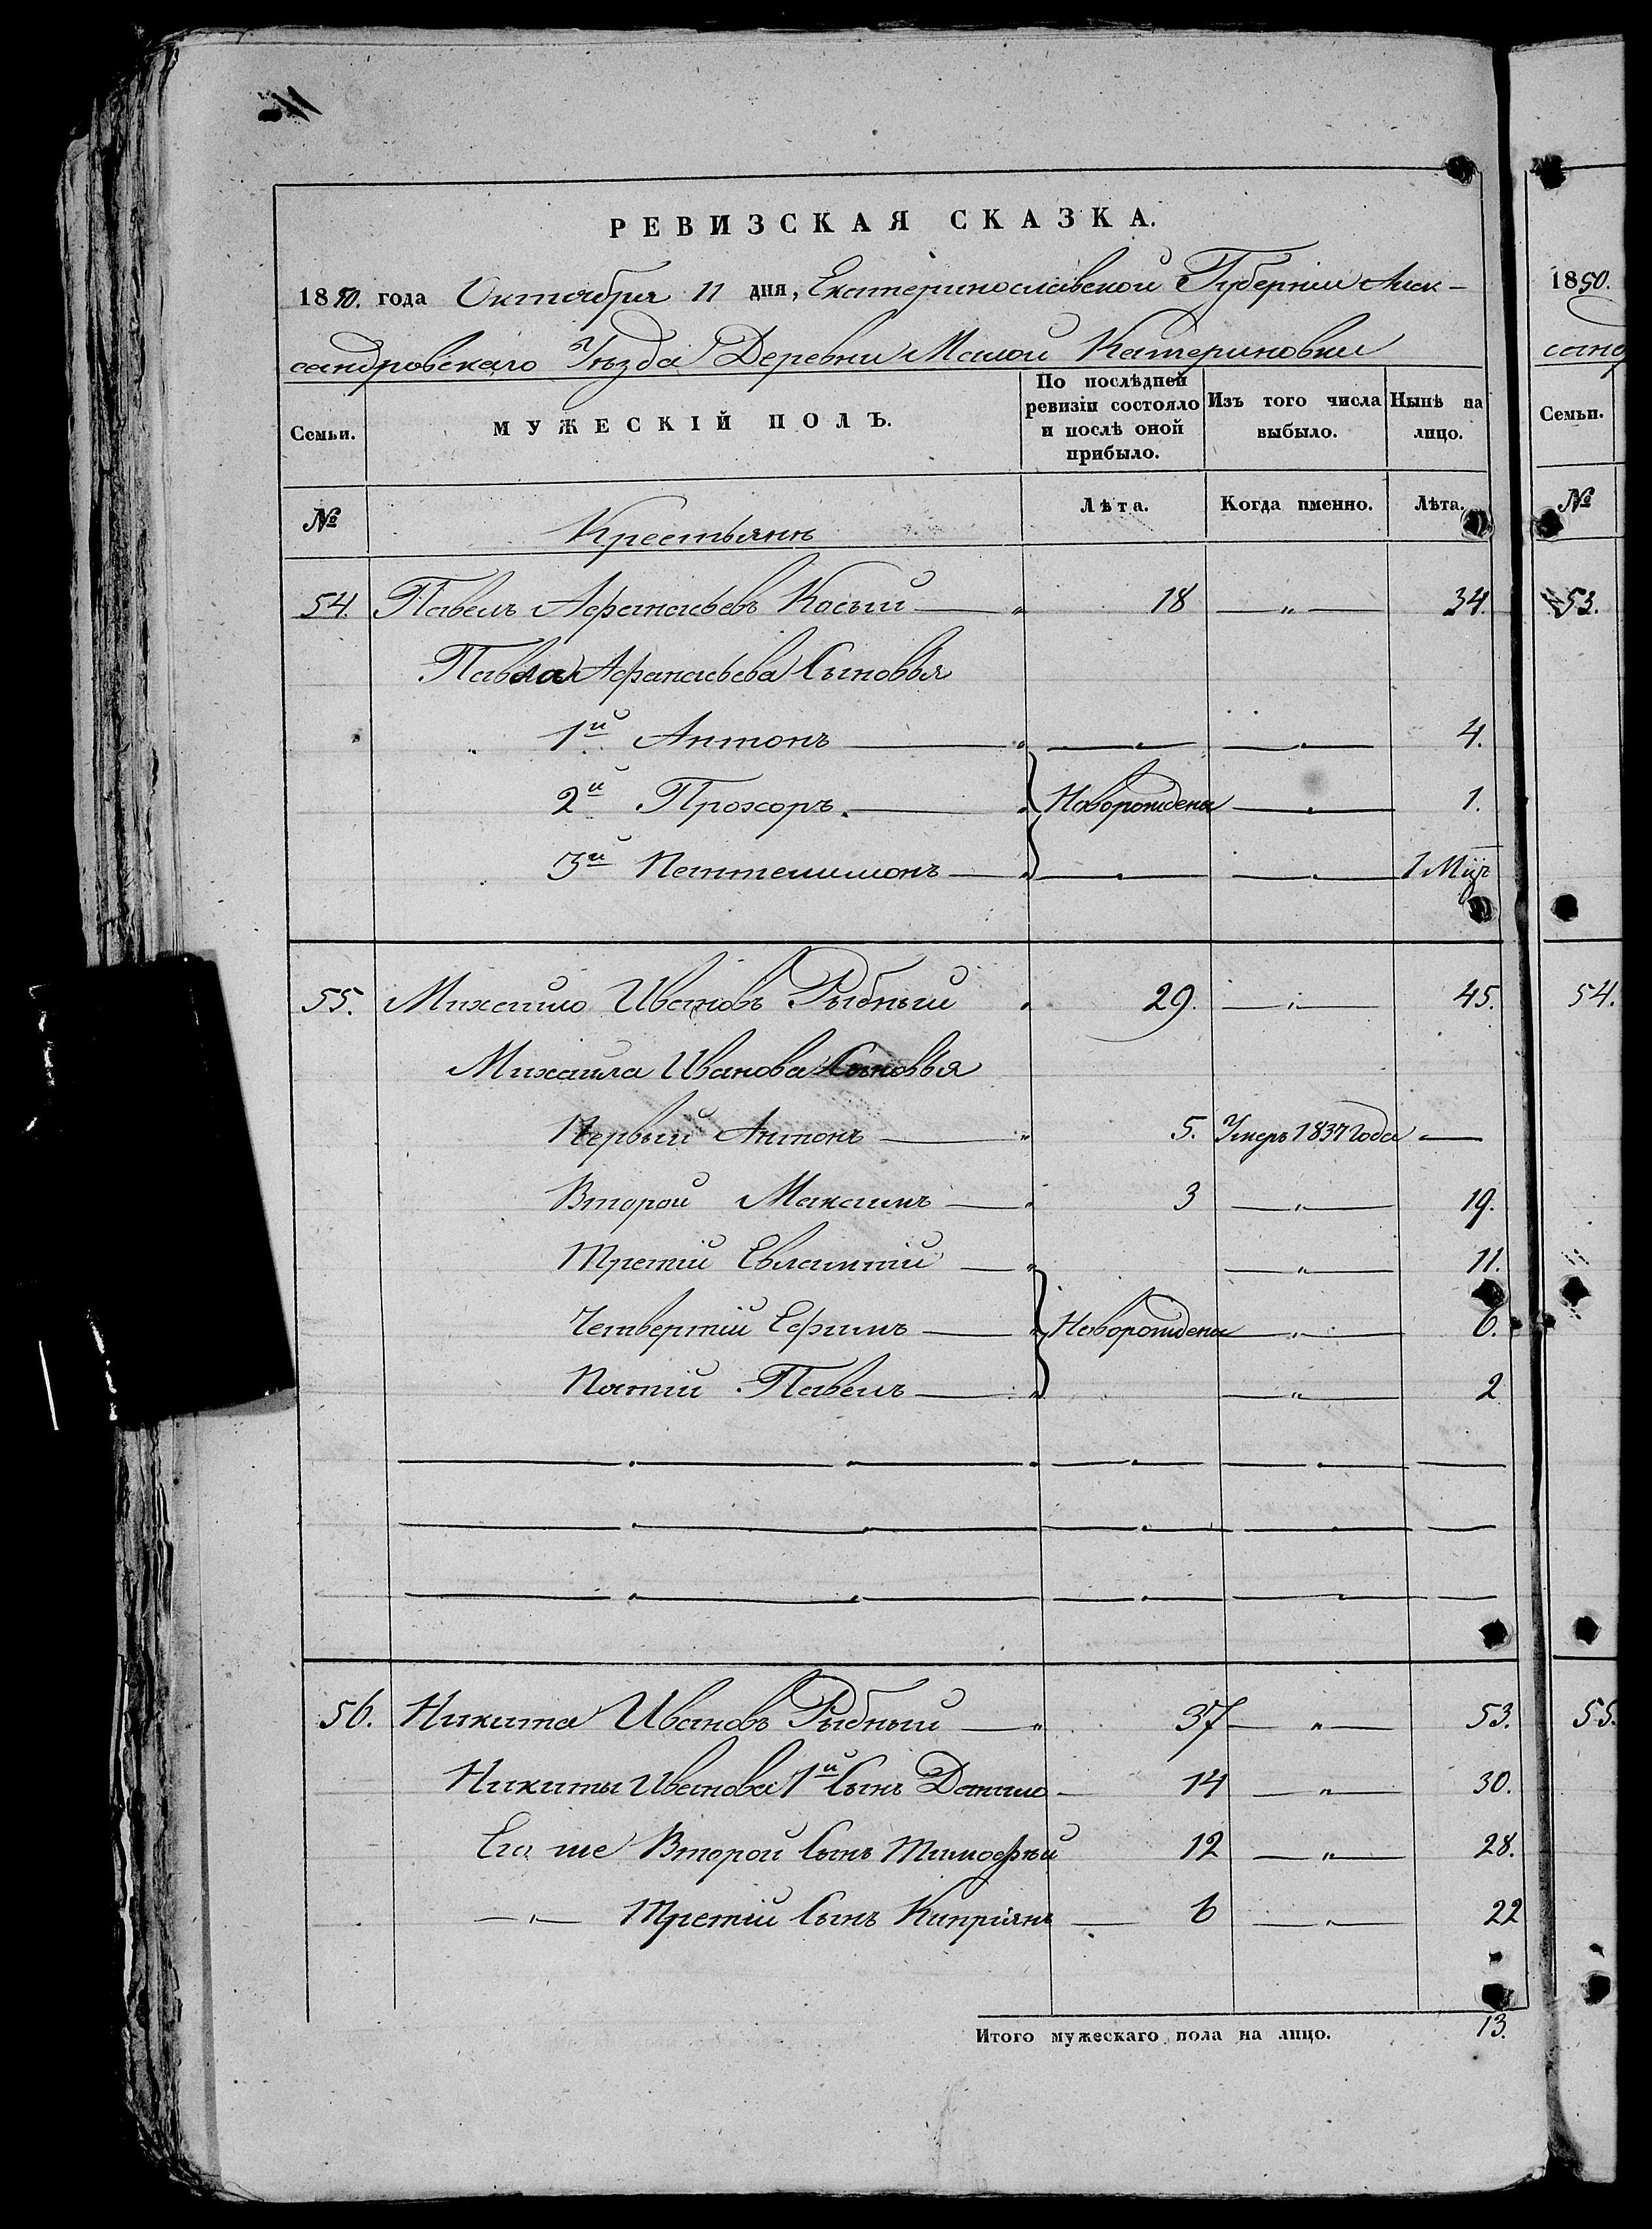 РЕВИЗСКАЯ СКАЗКА.
1850. года Октября 11 дня, Екатеринославской Губерніи Алек-
сандровскаго Уѣзда Деревни Малой Катериновки
Семьи. МУЖЕСКІЙ ПОЛЪ. По послѣдней ревизіи состояло и послѣ оной прибыло. Изъ того числа выбыло. Нынѣ на лицо.
№ Крестьянъ Лѣта. Когда именно. Лѣта.
54. Павелъ Афанасьевъ Косый 18 — " — 34.
Павла Афанасьева Сыновья
1й Антонъ 4.
2й Прохоръ. Новорождены 1.
3й Пантелимонъ 1 Мцъ
55. Михайло Ивановъ Рыбный 29. 45.
Михаила Иванова Сыновья
Первый Антонъ 5. Умеръ 1837 года
Второй Максимъ 3 — " — 19.
Третій Евлампій — " — 11.
Четвертій Ефимъ Новорождены — " — 6.
Пятій Павелъ — " — 2
56. Никита Ивановъ Рыбный 37 — " — 53.
Никиты Иванова 1й Сынъ Данило 14 — " — 30.
Его же Второй Сынъ Тимофѣй 12 — " — 28.
— " — Третій Сынъ Кипріянъ 6 — " — 22
Итого мужескаго пола на лицо. 13.
1850.
санд
Семьи.
№
53.
54.
55.